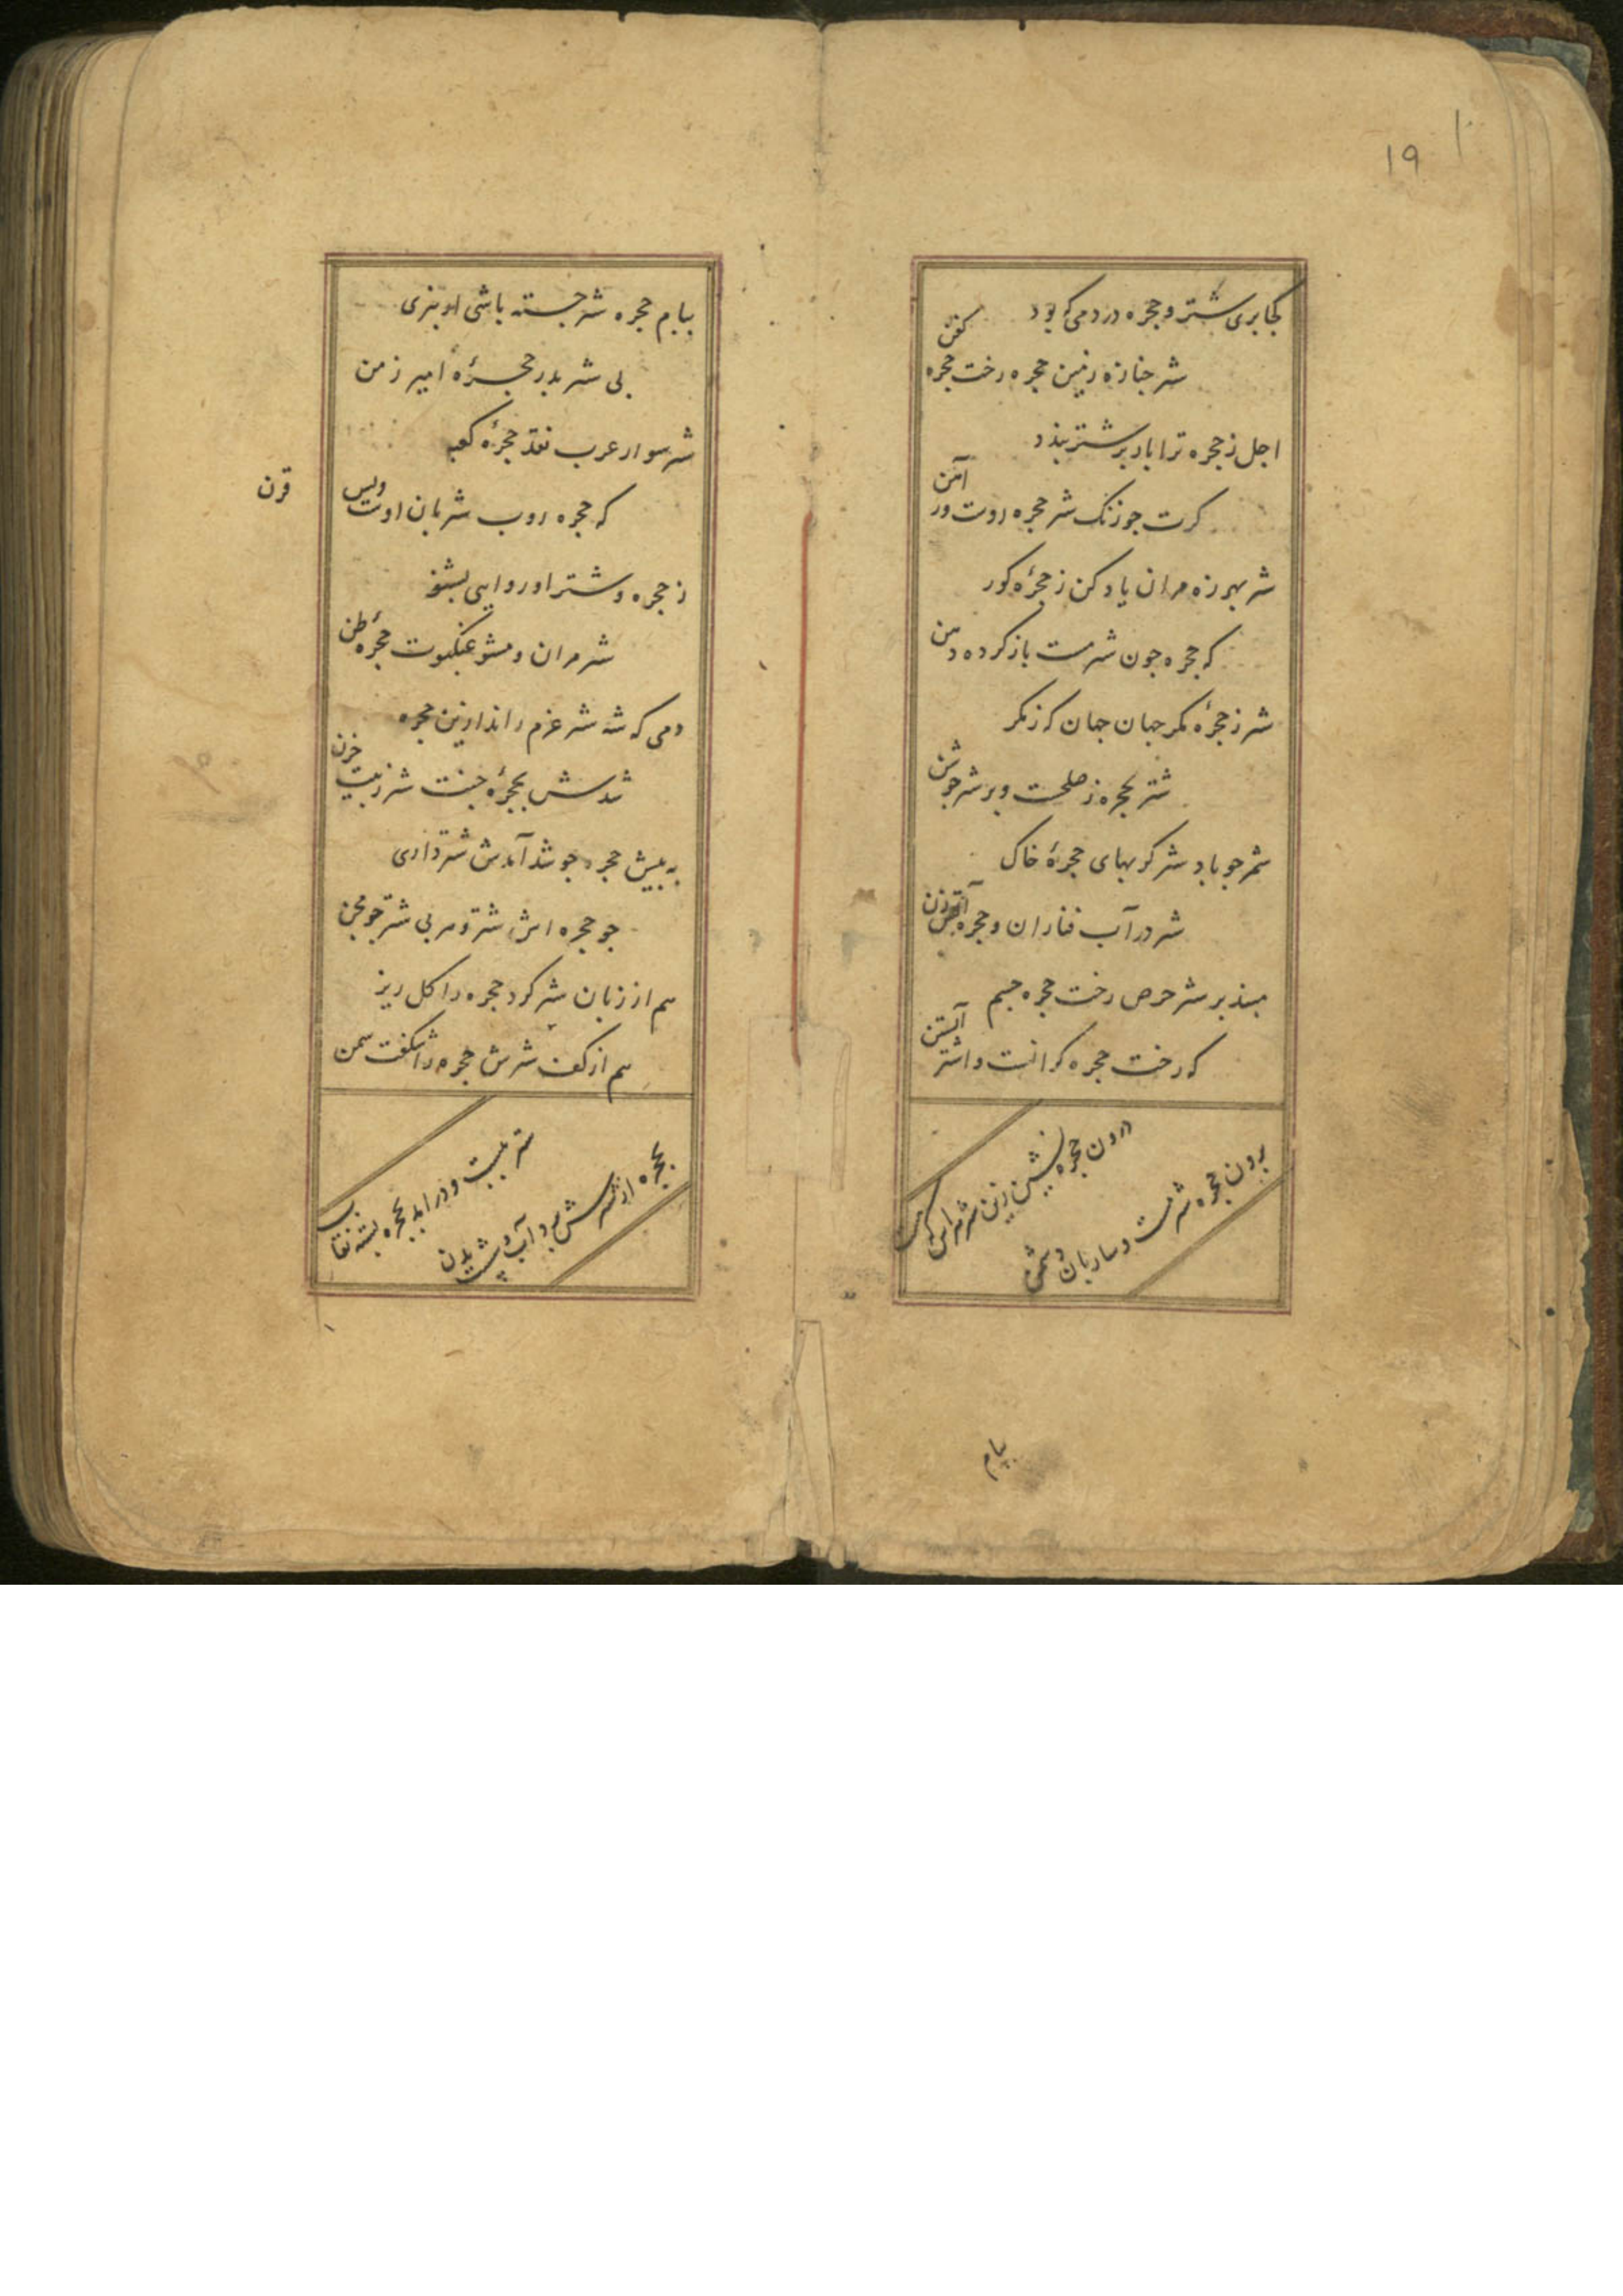 ۱۹
کجا بری شتر و حجره در دمی که بود
شتر جنازه زمین حجره رخت حجره کفن
اجل ز حجره ترا بار بر شتر بندد
کرت جو زنک شتر حجره روت در آهن
شتر بهرزه مران یاد کن ز حجرۀ کور
که حجره جون شتر مست باز کرده دهن
شتر ز حجرۀ مکر جهان جهان که ز مکر
شتر بحجره ز صلحت و بر شتر جوشن
شمر جو باد شتر کوبهای حجرۀ خاک
شتر در آب فنا ران و حجره آتش زن
مبند بر شتر حرص رخت حجره جسم
که رخت حجره کرانست و اشتر آبستن
برون حجره شتر مست و ساربان دشمن
درون حجره نشین زین شتر
بیام
بیام حجره شتر جسته باشی ار ببری
بی شتر بدر حجرۀ امیر زمن
شتر سوار عرب نقد حجرۀ کعبه
که حجره روب شتربان اوست ویس
قرن
ز حجره و شتر او روایتی بشنو
شتر مران و مشو عنکبوت حجره
دمی که شه شتر عزم راند ازین حجره
شدش بحجرۀ جنت شتر ز بیت حزن
به پیش حجره جو شد آمدش شترداری
جو حجره اش شتر و مربی شتر جو محن
هم از زبان شتر کرد حجره را کل ریز
هم از کف شترش حجره را شکفت سمن
بحجره از شترش برد آب و شست بدن
شتر ببست و درآمد بحجره بسته نقاب